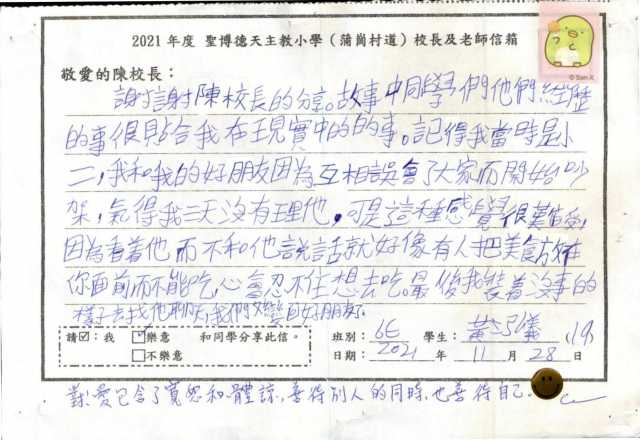 2021 年度 聖博德天主教小學（蒲崗村道）校長及老師信箱
© San-X
敬愛的陳校長：
謝謝陳校長的分享。故事中同學們他們經歷
的事很貼合我在現實中的的事。記得我當時是小
二，我和我的好朋友因為互相誤會了大家而開始吵
架，氣得我三天沒有理他。可是這種感覺很難受，
因為看着他而不和他說話就好像有人把美食放在
你面前而不能吃，心會忍不住想去吃。最後我裝着沒事的
樣子去找他聊天我們又變回好朋友。
請☑：我 ☑樂意 和同學分享此信。
□不樂意
班別： 6E 學生： 黃 儀 (19)
日期： 2021 年 11 月 28 日
對，愛包含了寬恕和體諒，善待別人的同時，也善待自己。